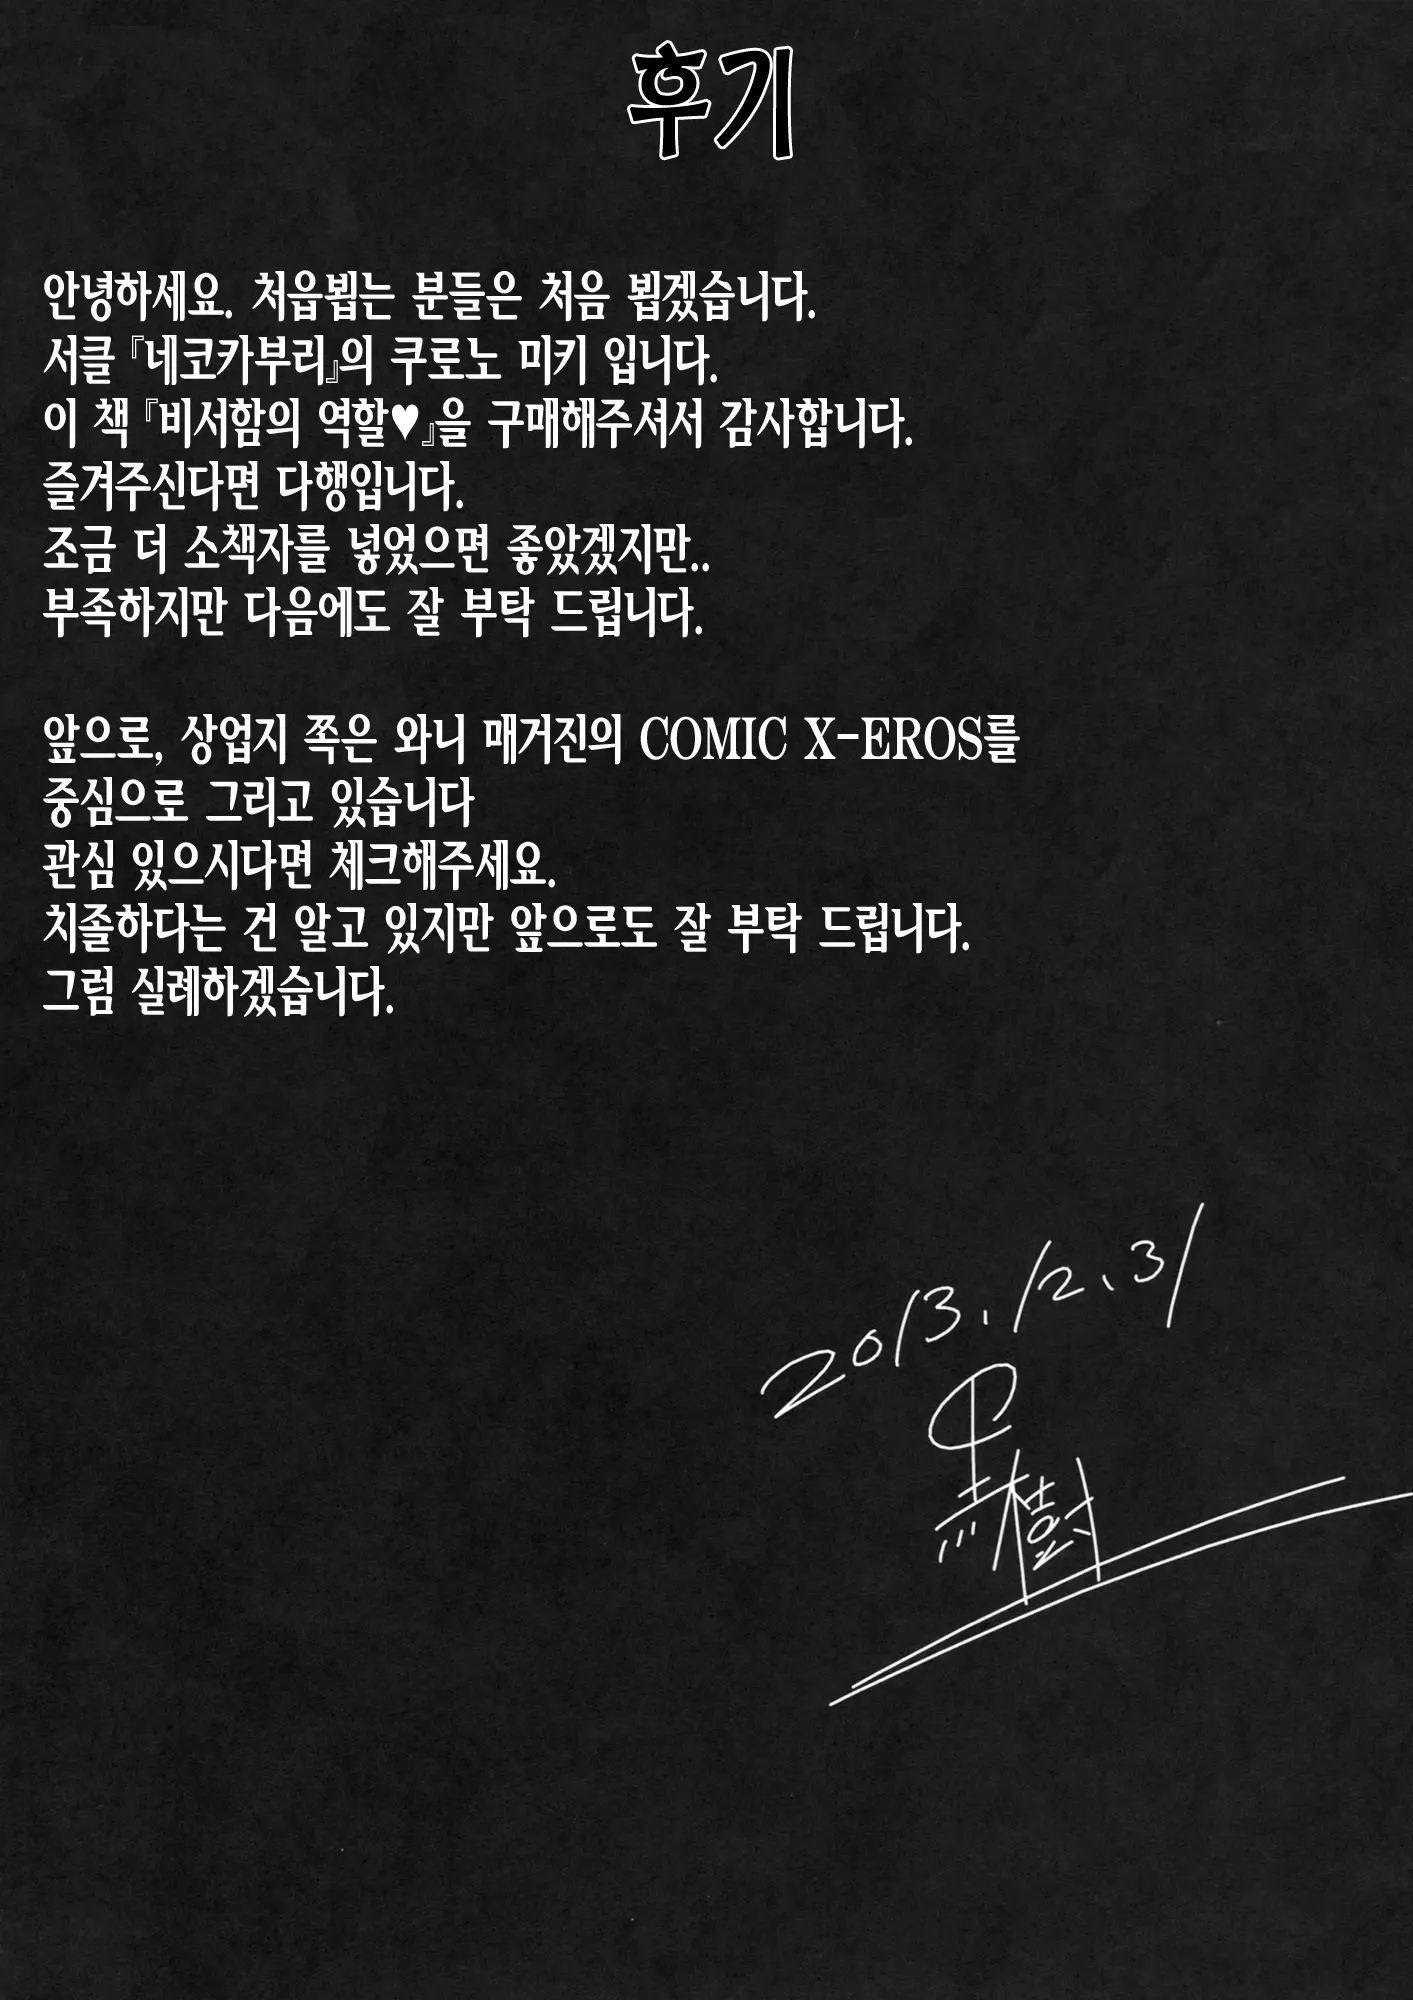 후기
안녕하세요. 처음뵙는 분들은 처음 뵙겠습니다.
서클 『네코카부리』의 쿠로노 미키 입니다.
이 책 『비서함의 역할♥』을 구매해주셔서 감사합니다.
즐겨주신다면 다행입니다.
조금 더 소책자를 넣었으면 좋았겠지만..
부족하지만 다음에도 잘 부탁 드립니다.
앞으로, 상업지 쪽은 와니 매거진의 COMIC X-EROS를
중심으로 그리고 있습니다
관심 있으시다면 체크해주세요.
치졸하다는 건 알고 있지만 앞으로도 잘 부탁 드립니다.
그럼 실례하겠습니다.
2013.12.31
黒樹